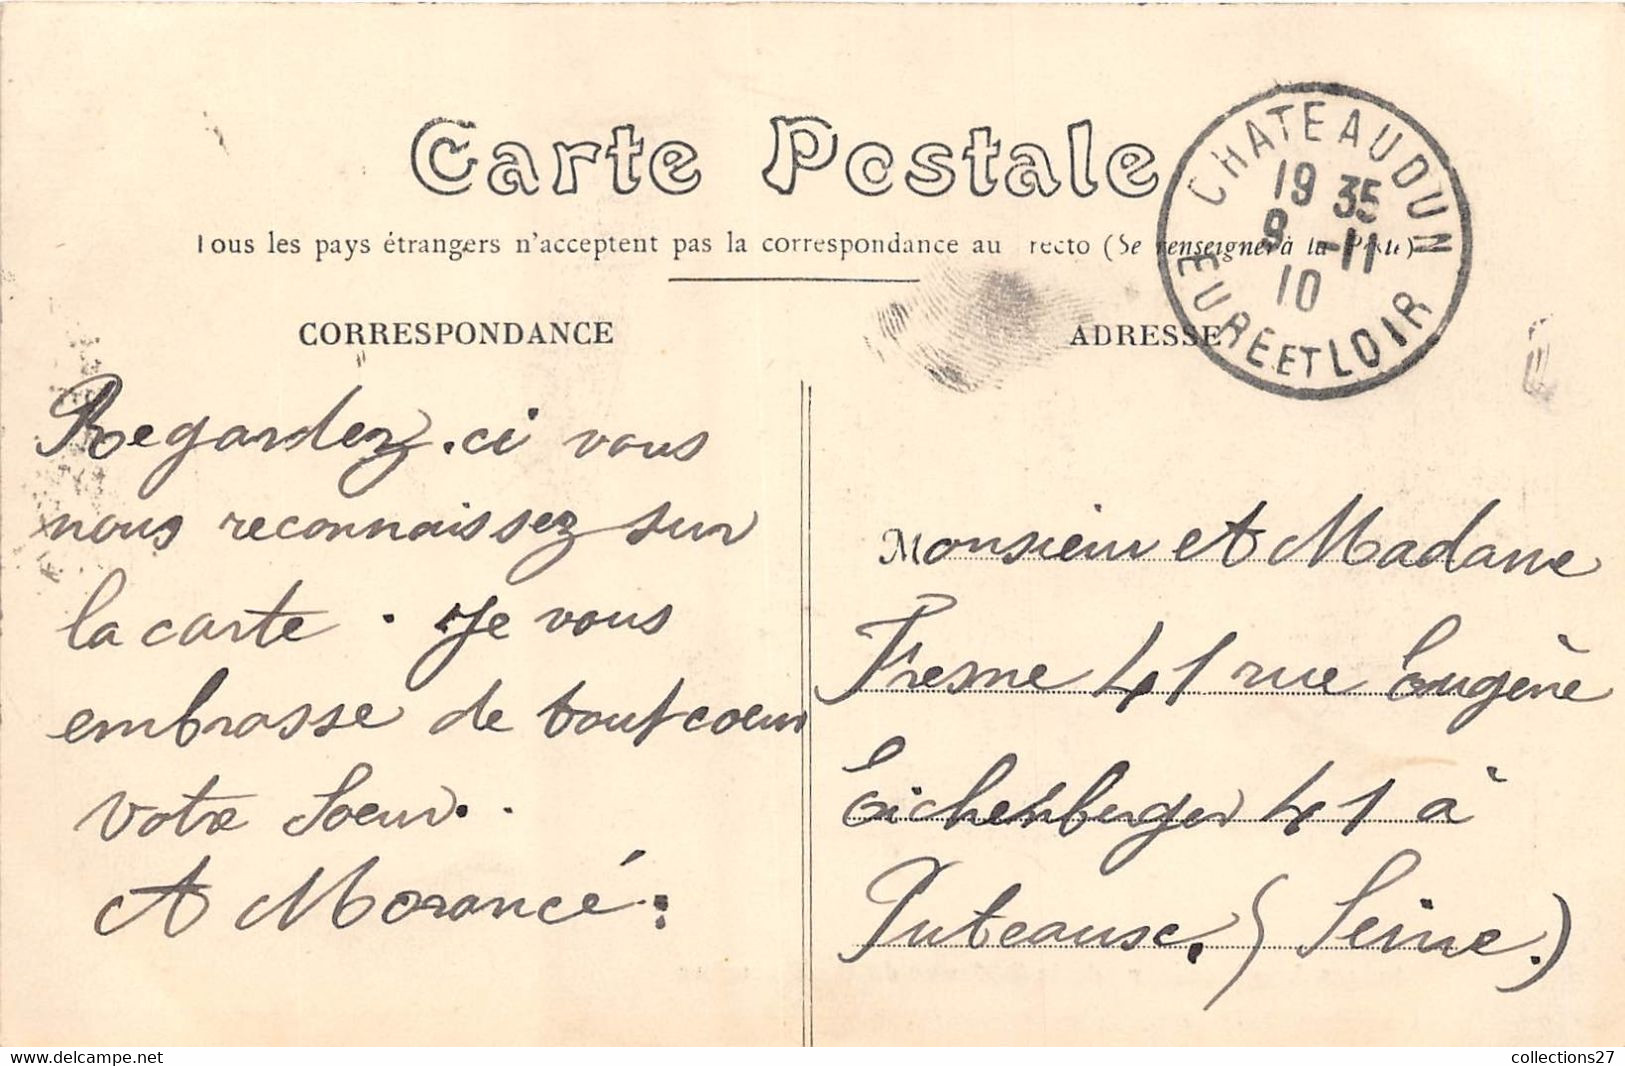 Carte Postale
Tous les pays étrangers n'acceptent pas la correspondance au recto (Se renseigner à la Poste)
CHATEAUDUN
19 35
9 -11
10
EURE ET LOIR
CORRESPONDANCE
Regardez.ci vous
nous reconnaissez sur
la carte. Je vous
embrasse de tout coeur
votre Soeur..
A Morancé.
ADRESSE
Monsieur et Madame
Fresne 41 rue Eugène
Eichenberger 41 à
Puteause. (Seine.)
collections27